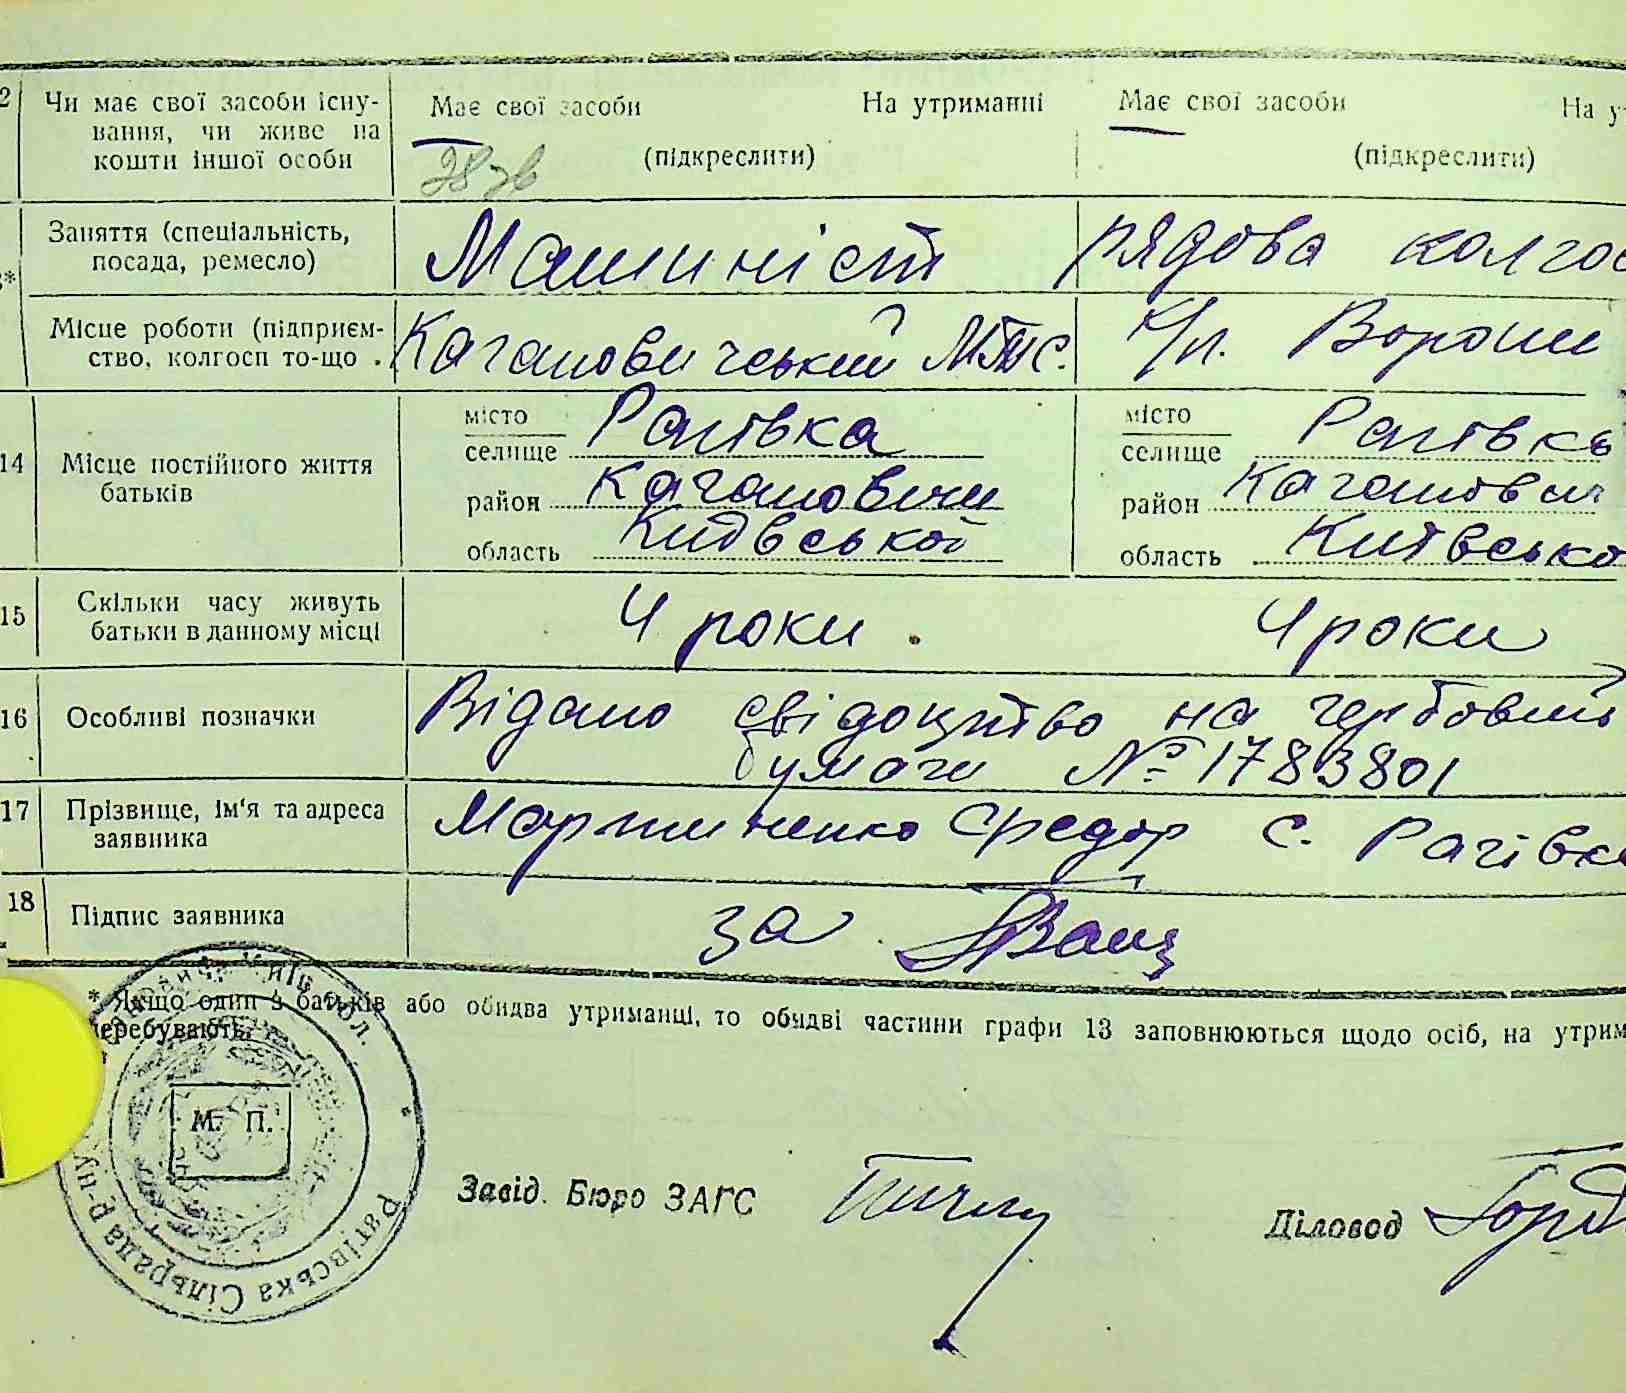 2 Чи має свої засоби існу- Має свої засоби На утриманні Має свої засоби На у
вання, чи живе на
кошти іншої особи (підкреслити) (підкреслити)
Заняття (спеціальність, Машиніст рядова колгос
посада, ремесло)
*
Місце роботи (підприєм- Кагановичський МТС. К/г. Вороши
ство, колгосп то-що .
14 Місце постійного життя батьків
місто Рагівка місто Рагівка
селище селище
район Кагановичи район Каганович
область Київської область Київсько
15 Скільки часу живуть 4 роки. 4 роки
батьки в данному місці
16 Особливі позначки Відано свідоцтво на гербовий
бумаги № 1783801
17 Прізвище, ім'я та адреса Мартиненко Федор с. Рагівка
заявника
18 Підпис заявника за
* Якщо один з батьків або обидва утриманці, то обидві частини графи 13 заповнюються щодо осіб, на утрим
перебувають.
М. П.
Рагівська Сільрада р-ну Київ обл.
Завід. Бюро ЗАГС Діловод